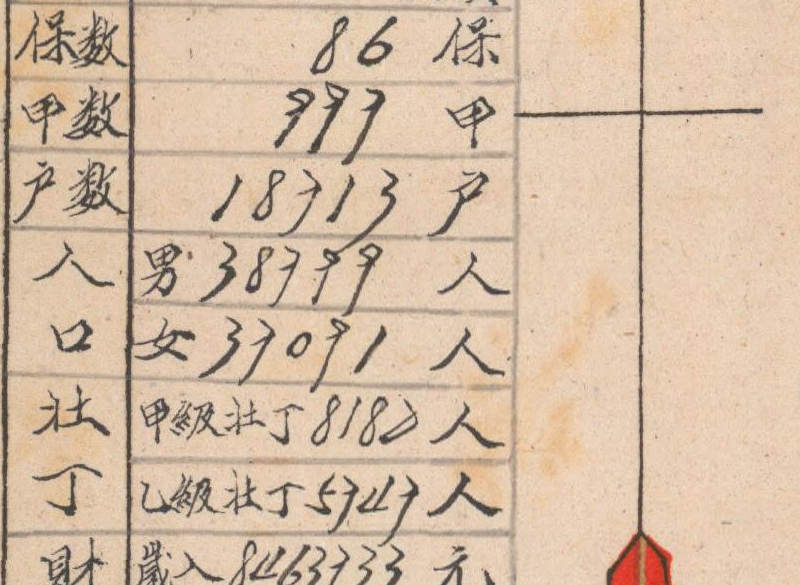 保数 86 保
甲数 999 甲
户数 18713 户
人口 男 38799 人
女 37091 人
壮丁 甲級壮丁 8182 人
乙級壮丁 5747 人
財 歲入 8463733 元